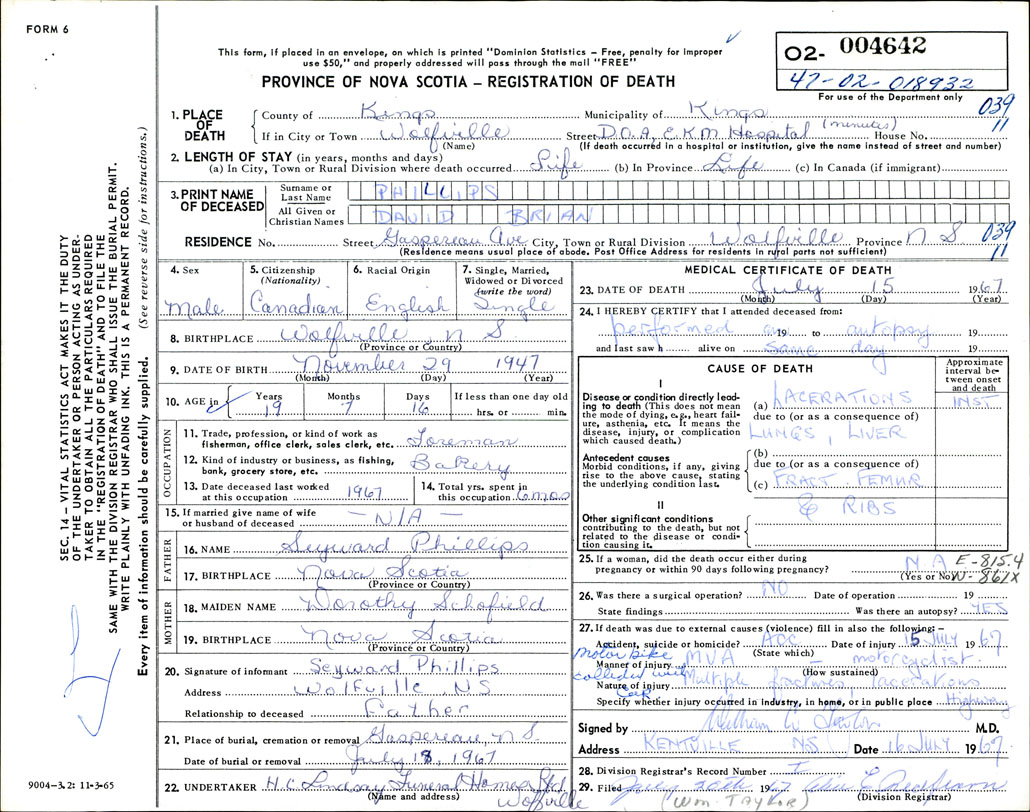 FORM 6
This form, if placed in an envelope, on which is printed "Dominion Statistics – Free, penalty for improper
use $50," and properly addressed will pass through the mail "FREE"
PROVINCE OF NOVA SCOTIA – REGISTRATION OF DEATH
O2- 004642
47-02-018932
For use of the Department only
039
11
1. PLACE OF DEATH
County of Kings Municipality of Kings
If in City or Town Wolfville Street D.O.A. E.K.M. Hospital (minutes) House No.
(Name) (If death occurred in a hospital or institution, give the name instead of street and number)
2. LENGTH OF STAY (in years, months and days)
(a) In City, Town or Rural Division where death occurred Life (b) In Province Life (c) In Canada (if immigrant)
3. PRINT NAME OF DECEASED
Surname or Last Name PHILLIPS
All Given or Christian Names DAVID BRIAN
039
11
RESIDENCE No. Street Gaspereau Ave City, Town or Rural Division Wolfville Province N S
(Residence means usual place of abode. Post Office Address for residents in rural parts not sufficient)
4. Sex
Male
5. Citizenship (Nationality)
Canadian
6. Racial Origin
English
7. Single, Married, Widowed or Divorced (write the word)
Single
8. BIRTHPLACE Wolfville N S
(Province or Country)
9. DATE OF BIRTH November 29 1947
(Month) (Day) (Year)
10. AGE in Years Months Days If less than one day old
19 7 16 hrs. or min.
OCCUPATION
11. Trade, profession, or kind of work as
fisherman, office clerk, sales clerk, etc. Foreman
12. Kind of industry or business, as fishing,
bank, grocery store, etc. Bakery
13. Date deceased last worked
at this occupation 1967
14. Total yrs. spent in
this occupation 6 mos
15. If married give name of wife
or husband of deceased — N/A —
FATHER
16. NAME Seyward Phillips
17. BIRTHPLACE Nova Scotia
(Province or Country)
MOTHER
18. MAIDEN NAME Dorothy Schofield
19. BIRTHPLACE Nova Scotia
(Province or Country)
20. Signature of informant Seyward Phillips
Address Wolfville NS
Relationship to deceased Father
21. Place of burial, cremation or removal Gaspereau, N.S.
Date of burial or removal July 18, 1967
22. UNDERTAKER H.C. Lindsay Funeral Home Ltd
(Name and address) Wolfville
MEDICAL CERTIFICATE OF DEATH
23. DATE OF DEATH July 15 1967
(Month) (Day) (Year)
24. I HEREBY CERTIFY that I attended deceased from:
performed an 19 to autopsy 19
and last saw h alive on same day 19
CAUSE OF DEATH
Approximate interval between onset and death
I
Disease or condition directly leading to death (This does not mean the mode of dying, e.g., heart failure, asthenia, etc. It means the disease, injury, or complication which caused death.)
(a) LACERATIONS INST
due to (or as a consequence of)
LUNGS, LIVER
Antecedent causes
Morbid conditions, if any, giving rise to the above cause, stating the underlying condition last.
(b)
due to (or as a consequence of)
(c) FRACT. FEMUR
& RIBS
II
Other significant conditions
contributing to the death, but not related to the disease or condition causing it.
25. If a woman, did the death occur either during
pregnancy or within 90 days following pregnancy? N.A
(Yes or No)
E-815.4
N-861X
26. Was there a surgical operation? NO Date of operation 19
State findings Was there an autopsy? YES
27. If death was due to external causes (violence) fill in also the following:–
Accident, suicide or homicide? ACC. Date of injury 15 JULY 1967
(State which)
Motor bike collided with car
Manner of injury MVA — motorcyclist
(How sustained)
Nature of injury Multiple fractures, lacerations
Specify whether injury occurred in industry, in home, or in public place Highway
Signed by M.D.
Address KENTVILLE NS Date 16 JULY 1967
28. Division Registrar's Record Number
29. Filed July 1967
(Division Registrar)
(WM. TAYLOR)
SEC. 14 – VITAL STATISTICS ACT MAKES IT THE DUTY
OF THE UNDERTAKER OR PERSON ACTING AS UNDER-
TAKER TO OBTAIN ALL THE PARTICULARS REQUIRED
IN THE "REGISTRATION OF DEATH" AND TO FILE THE
SAME WITH THE DIVISION REGISTRAR WHO SHALL ISSUE THE BURIAL PERMIT.
WRITE PLAINLY WITH UNFADING INK. THIS IS A PERMANENT RECORD.
Every item of information should be carefully supplied. (See reverse side for instructions.)
9004-3.2: 11-3-65